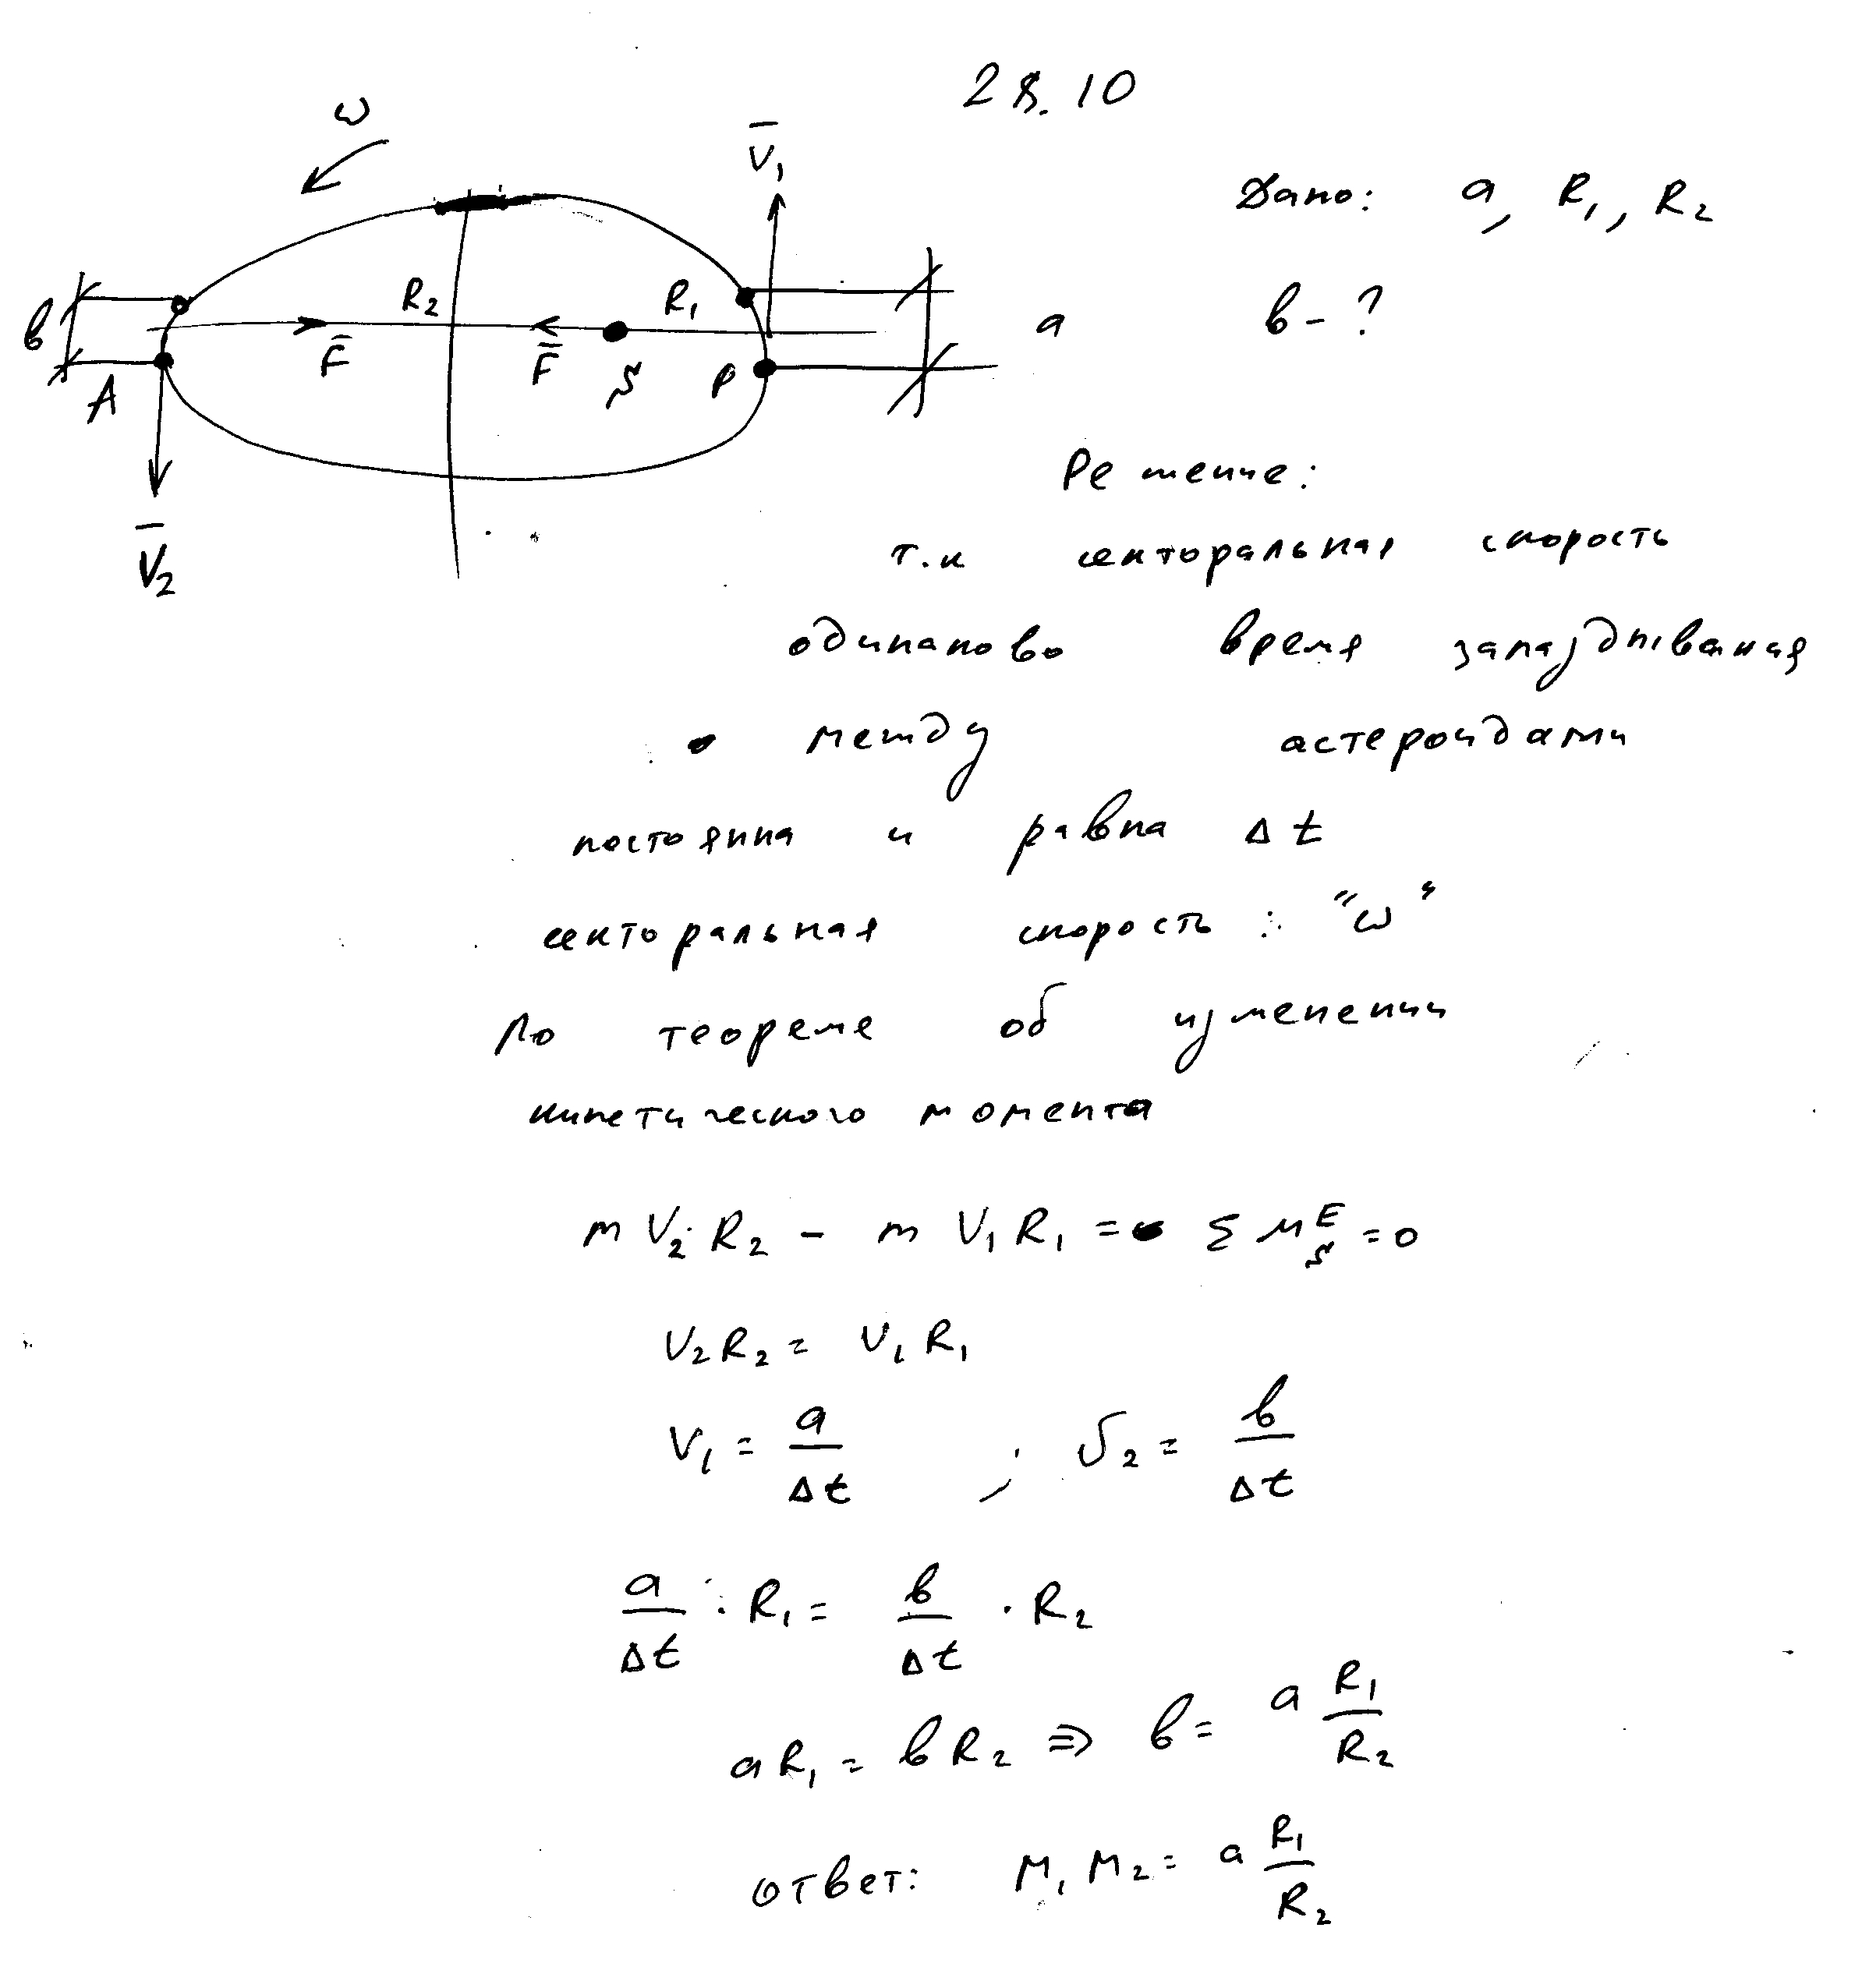 28.10
ω
V̄₁
Дано: a, R₁, R₂
в
R₂
R₁
a
в - ?
F̄
F̄
S
P
A
V̄₂
Решение:
т.к секторальная скорость
одинаково время запаздывания
между астероидами
постоянна и равна Δt
секторальная скорость : "ω"
По теореме об изменении
кинетического момента
mV₂R₂ - mV₁R₁ = ΣM_S^E = 0
V₂R₂ = V₁R₁
V₁ = a/Δt ; V₂ = в/Δt
a/Δt · R₁ = в/Δt · R₂
aR₁ = вR₂ ⇒ в = a R₁/R₂
ответ: M₁M₂ = a R₁/R₂